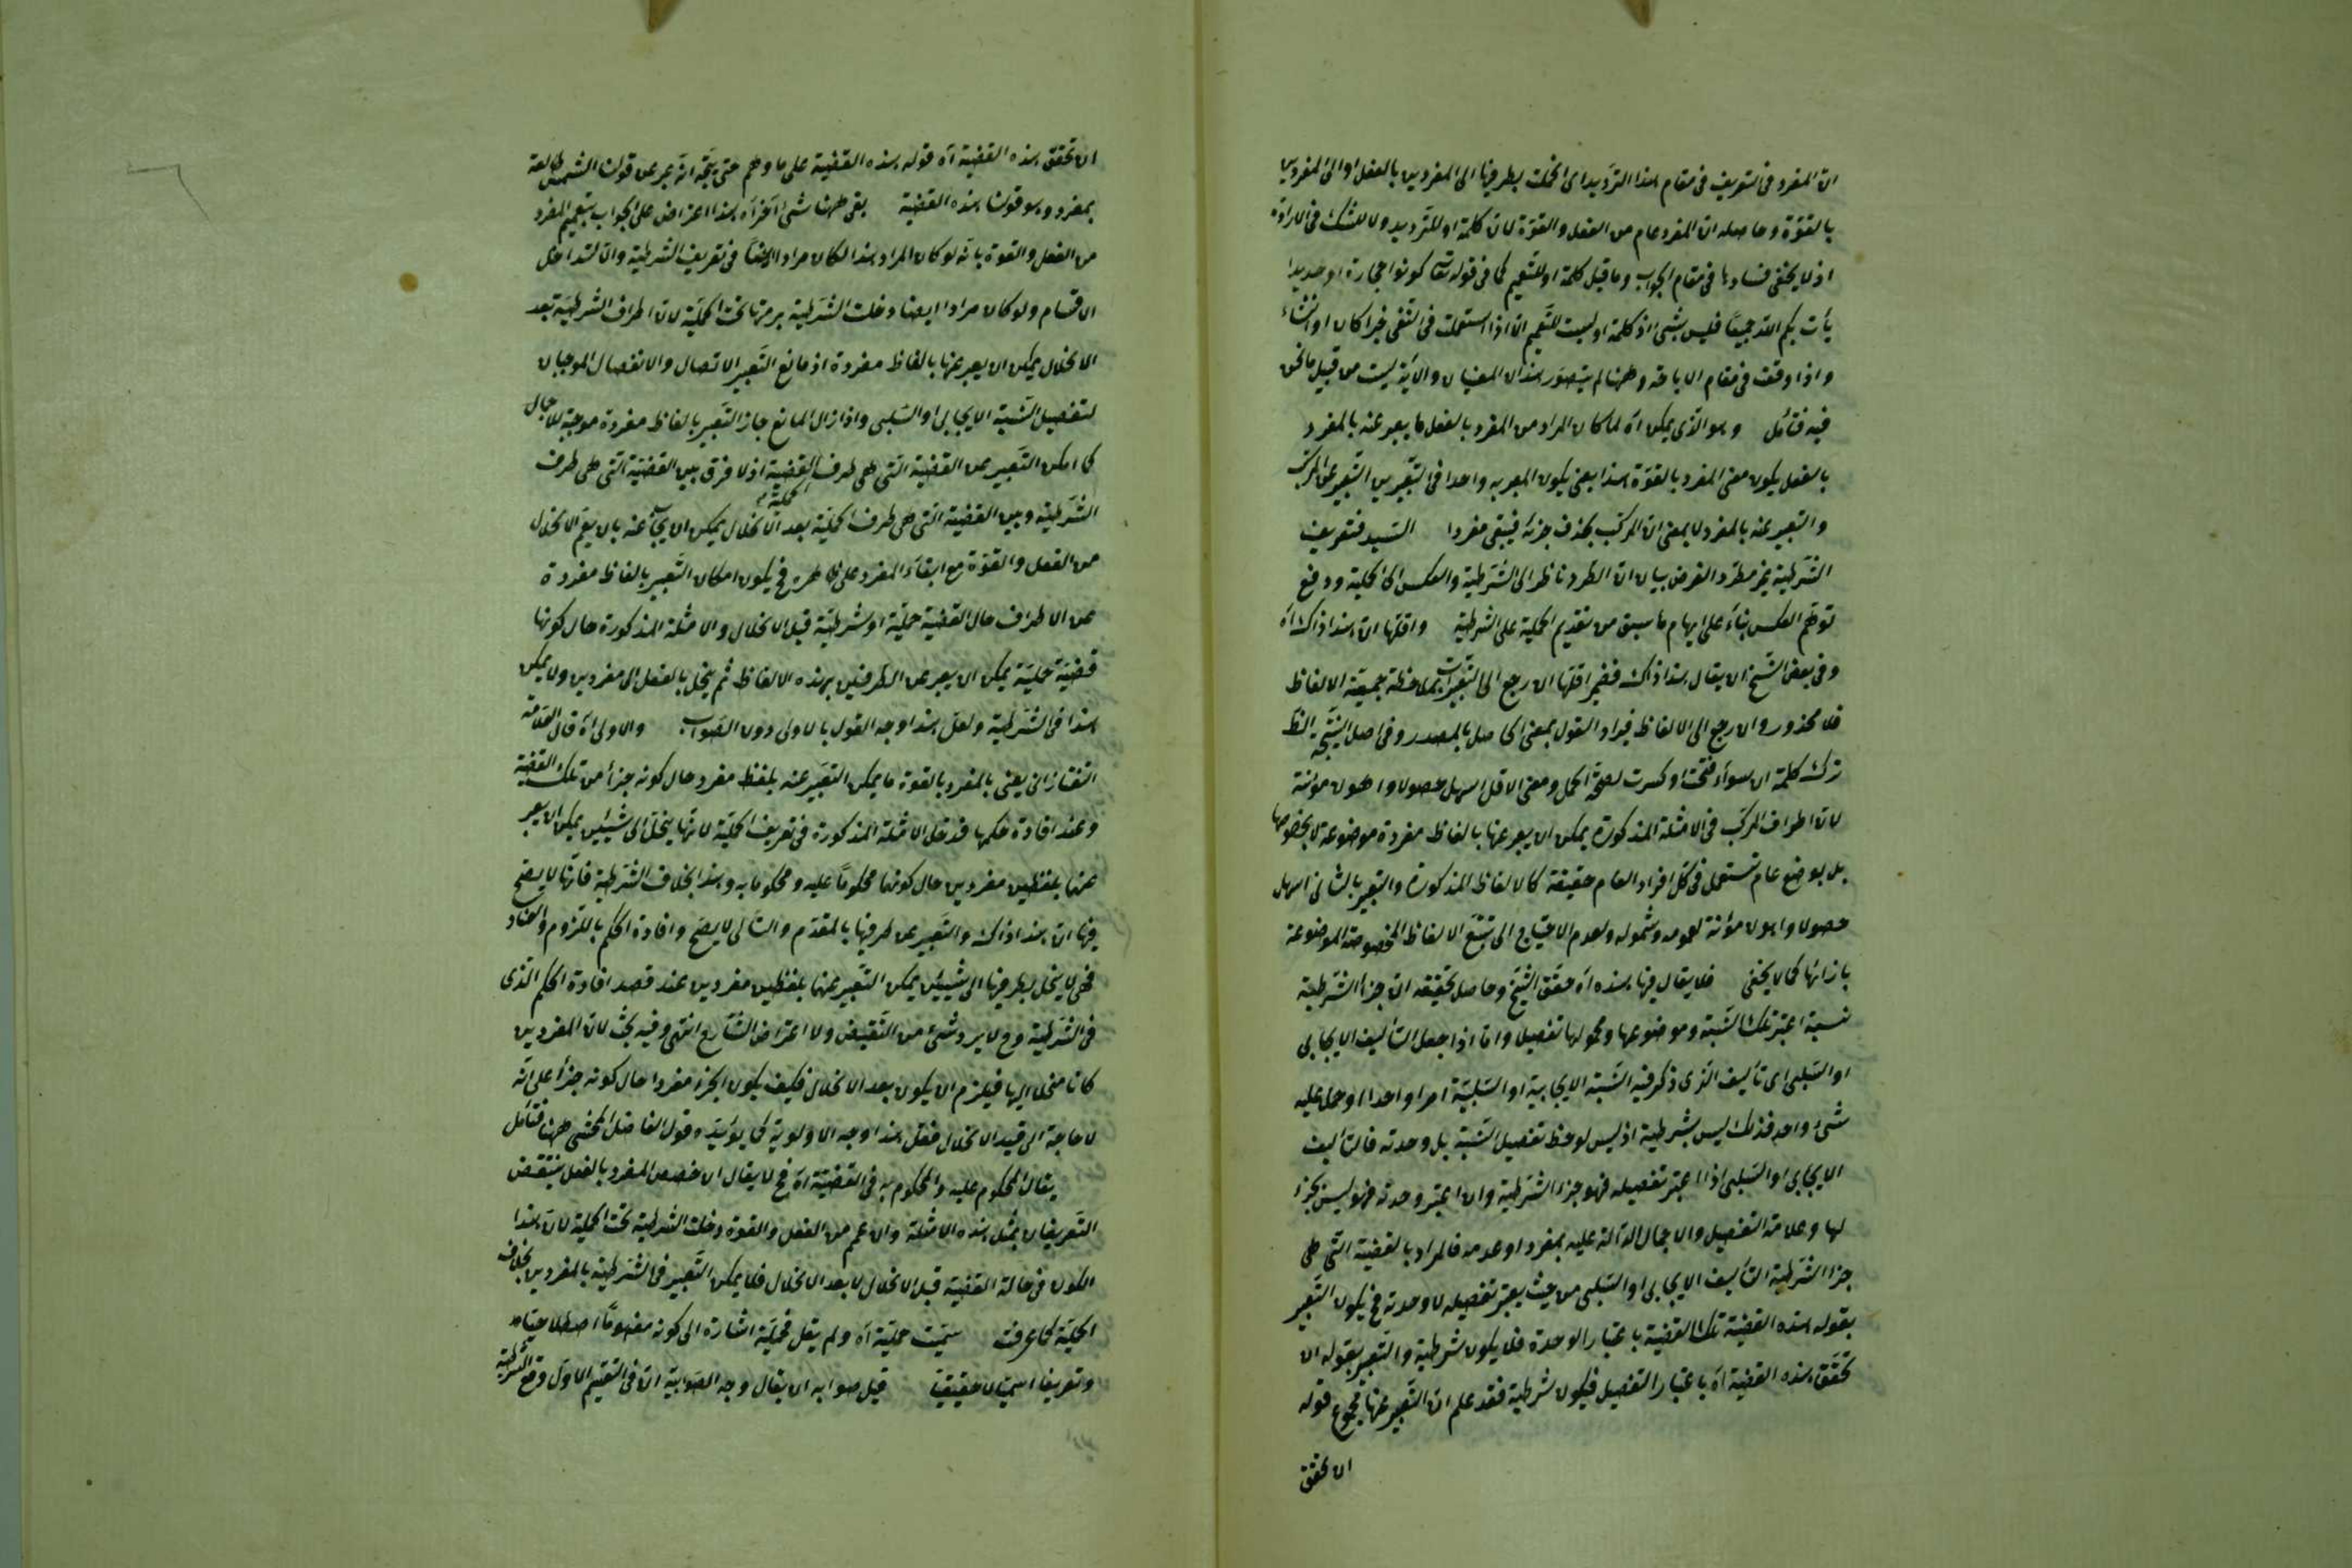 ان المفرد فى التعريف فى مقام هذا الترديد اى انحلت بطرفيها الى المفردين بالفعل او الى المفردين
بالقوة وحاصله ان المفرد عام من الفعل والقوة لان كلمة او للترديد ولا للشك فى الارادة
اذ لا يخفى فسادها فى مقام الجواب وما قيل كلمة او للتعميم كما فى قوله تعالى كونوا حجارة او حديدا
يأت بكم الله جميعا فليس بشئ اذ كلمة او ليست للتعميم الا اذا استعملت فى النفى خبرا كان او انشاء
واذا وقعت فى مقام الاباحة وههنا لم يتصور هذان المعنيان والآية ليست من قبيل ما نحن
فيه فتأمل وهو الذى يمكن اه لما كان المراد من المفرد بالفعل ما يعبر عنه بالمفرد
بالفعل يكون معنى المفرد بالقوة هذا يعنى يكون المعبر به واحدا فى التعبيرين التعبير عن المركب
والتعبير عنه بالمفرد لا بمعنى ان المركب بحذف جزئه فيبقى مفردا السيد فتعريف
الشرطية غير مطرد الغرض بيان ان الطرد ناظر الى الشرطية والعكس الى الحملية ودفع
توهم العكس بناء على ايهام ما سبق من تقديم الحملية على الشرطية واقلها ان هذا ذاك اه
وفى بعض النسخ ان يقال هذا ذاك فضمير اقلها ان رجع الى التعبيرات بملاحظة جمعية الالفاظ
فلا محذور وان رجع الى الالفاظ فيراد القول بمعنى الحاصل بالمصدر وفى اصل النسخة
ترك كلمة ان سواء فتحت او كسرت لصحة الحمل ومعنى الاقل اسهل حصولا واهون مؤنة
لان اطراف المركب فى الامثلة المذكورة يمكن ان يعبر عنها بالفاظ مفردة موضوعة لا بخصوصها
بل بوضع عام تستعمل فى كل افراد العام حقيقة كالالفاظ المذكورة والتعبير بالثانى اسهل
حصولا واهون مؤنة لعمومه وشموله ولعدم الاحتياج الى تتبع الالفاظ المخصوصة الموضوعة
بازائها كما لا يخفى فلا يقال فيها هذه اه حقق الشيخ وحاصل تحقيقه ان جزأ الشرطية
نسبة اعتبر تلك النسبة وموضوعها ومحمولها تفصيلا واما اذا جعل التأليف الايجابى
او السلبى اى تأليف الذى ذكر فيه النسبة الايجابية او السلبية امرا واحدا او حمل عليه
شئ واحد فذلك ليس بشرطية اذ ليس لوحظ تفصيل النسبة بل وحدته فالتأليف
الايجابى او السلبى اذا اعتبر تفصيله فهو جزء الشرطية وان اعتبر وحدته فهو ليس بجزء
لها وعلامة التفصيل والاجمال الدالة عليه بمفرد او عدمه فالمراد بالقضية التى هى
جزء الشرطية التأليف الايجابى او السلبى من حيث يعتبر تفصيله لا وحدته فح يكون التعبير
بقوله هذه القضية تلك القضية باعتبار الوحدة فلا يكون شرطية والتعبير بقوله ان
تحقق هذه القضية اه باعتبار التفصيل فيكون شرطية فقد علم ان التعبير عنها بمجموع قوله
ان تحقق
ان تحقق هذه القضية اه قوله هذه القضية على ما وهم حتى يتجه انه عبر عن قولنا الشمس طالعة
بمفرد وهو قولنا هذه القضية بقى ههنا شئ آخر اه هذا اعتراض على الجواب بتعميم المفرد
من الفعل والقوة بانه لو كان المراد هذا لكان مرادا ايضا فى تعريف الشرطية والا لتداخل
الاقسام ولو كان مرادا ايضا دخلت الشرطية برمتها تحت الحملية لان اطراف الشرطية بعد
الانحلال يمكن ان يعبر عنها بالفاظ مفردة اذ مانع التعبير الاتصال والانفصال الموجبان
لتفصيل النسبة الايجابى او السلبى واذا زال المانع جاز التعبير بالفاظ مفردة موجبة للاجمال
كما امكن التعبير عن القضية التى هى طرف القضية الحملية اذ لا فرق بين القضية التى هى طرف
الشرطية وبين القضية التى هى طرف الحملية بعد الانحلال يمكن ان يجاب عنه بان يقيم الانحلال
من الفعل والقوة مع ابقاء المفرد على ظاهره فح يكون امكان التعبير بالفاظ مفردة
عن الاطراف حال القضية حملية او شرطية قبل الانحلال والامثلة المذكورة حال كونها
قضية حملية يمكن ان يعبر عن الطرفين بهذه الالفاظ ثم ينحل بالفعل الى مفردين ولا يمكن
هذا فى الشرطية ولعل هذا وجه القول بالاولى دون الصواب والاولى اه قال العلامة
التفتازانى يعنى بالمفرد بالقوة ما يمكن التعبير عنه بلفظ مفرد حال كونه جزأ من تلك القضية
وعند افادة حكمها فدخل الامثلة المذكورة فى تعريف الحملية لانها ينحل الى شيئين يمكن ان يعبر
عنهما بلفظين مفردين حال كونهما محكوما عليه ومحكوما به وهذا بخلاف الشرطية فانها لا يصح
فيها ان هذا ذاك والتعبير عن طرفيها بالمقدم والتالى لا يصح وافادة الحكم باللزوم والعناد
فهى لا ينحل بطرفيها الى شيئين يمكن التعبير عنهما بلفظين مفردين عند قصد افادة الحكم الذى
فى الشرطية وح لا يرد شئ من النقيض ولا اعتراض الشارح انتهى وفيه بحث لان المفردين
كانا منحلا اليها فيلزم ان يكون بعد الانحلال فكيف يكون الجزء مفردا حال كونه جزأ على انه
لا حاجة الى قيد الانحلال فلعل هذا وجه الاولوية كما يؤيده قول الفاضل المحشى ههنا فتأمل
يقال المحكوم عليه والمحكوم به فى القضية اه فح لا يقال ان خصص المفرد بالفعل ينتقض
التعريفان بمثل هذه الامثلة وان عمم من الفعل والقوة دخلت الشرطية تحت الحملية لان هذا
الكون فى حالة القضية قبل الانحلال لا بعد الانحلال فلا يمكن التعبير فى الشرطية بالمفردين بخلاف
الحملية كما عرفت سميت حملية اه ولم يقل فحملية اشارة الى كونه مفهوما اصطلاحيا
وتعريفا اسميا لا حقيقيا قيل صوابه ان يقال وجه الصوابية ان فى التقسيم الاول وقع الشرطية